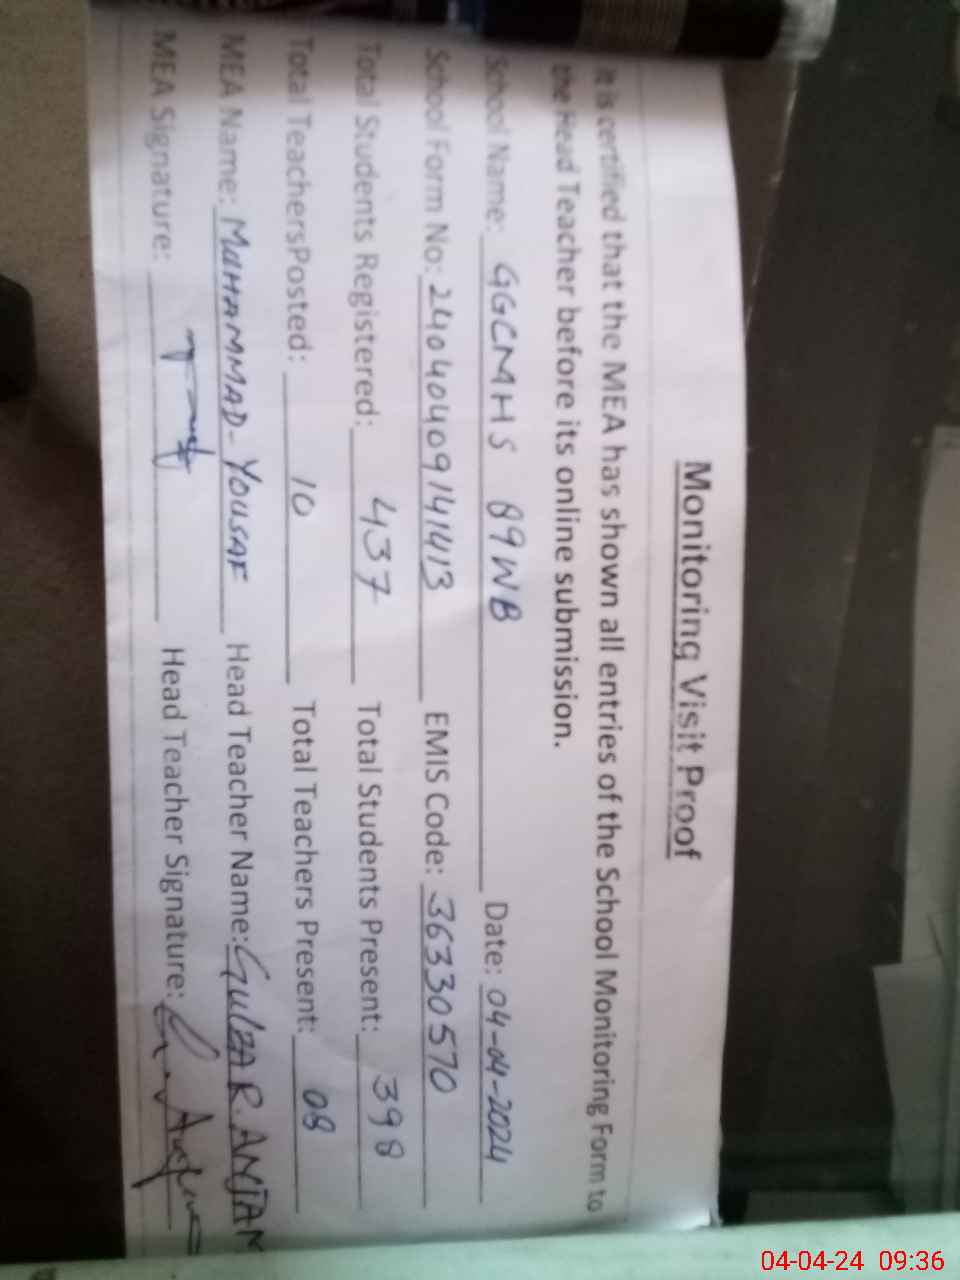 Monitoring Visit Proof
It is certified that the MEA has shown all entries of the School Monitoring Form to
the Head Teacher before its online submission.
School Name: GGCMHS 89WB Date: 04-04-2024
School Form No: 24040409141413 EMIS Code: 36330570
Total Students Registered: 437 Total Students Present: 398
Total TeachersPosted: 10 Total Teachers Present: 08
MEA Name: MUHAMMAD-YOUSAF Head Teacher Name: GULZAR.ANJAM
MEA Signature: Head Teacher Signature:
04-04-24 09:36